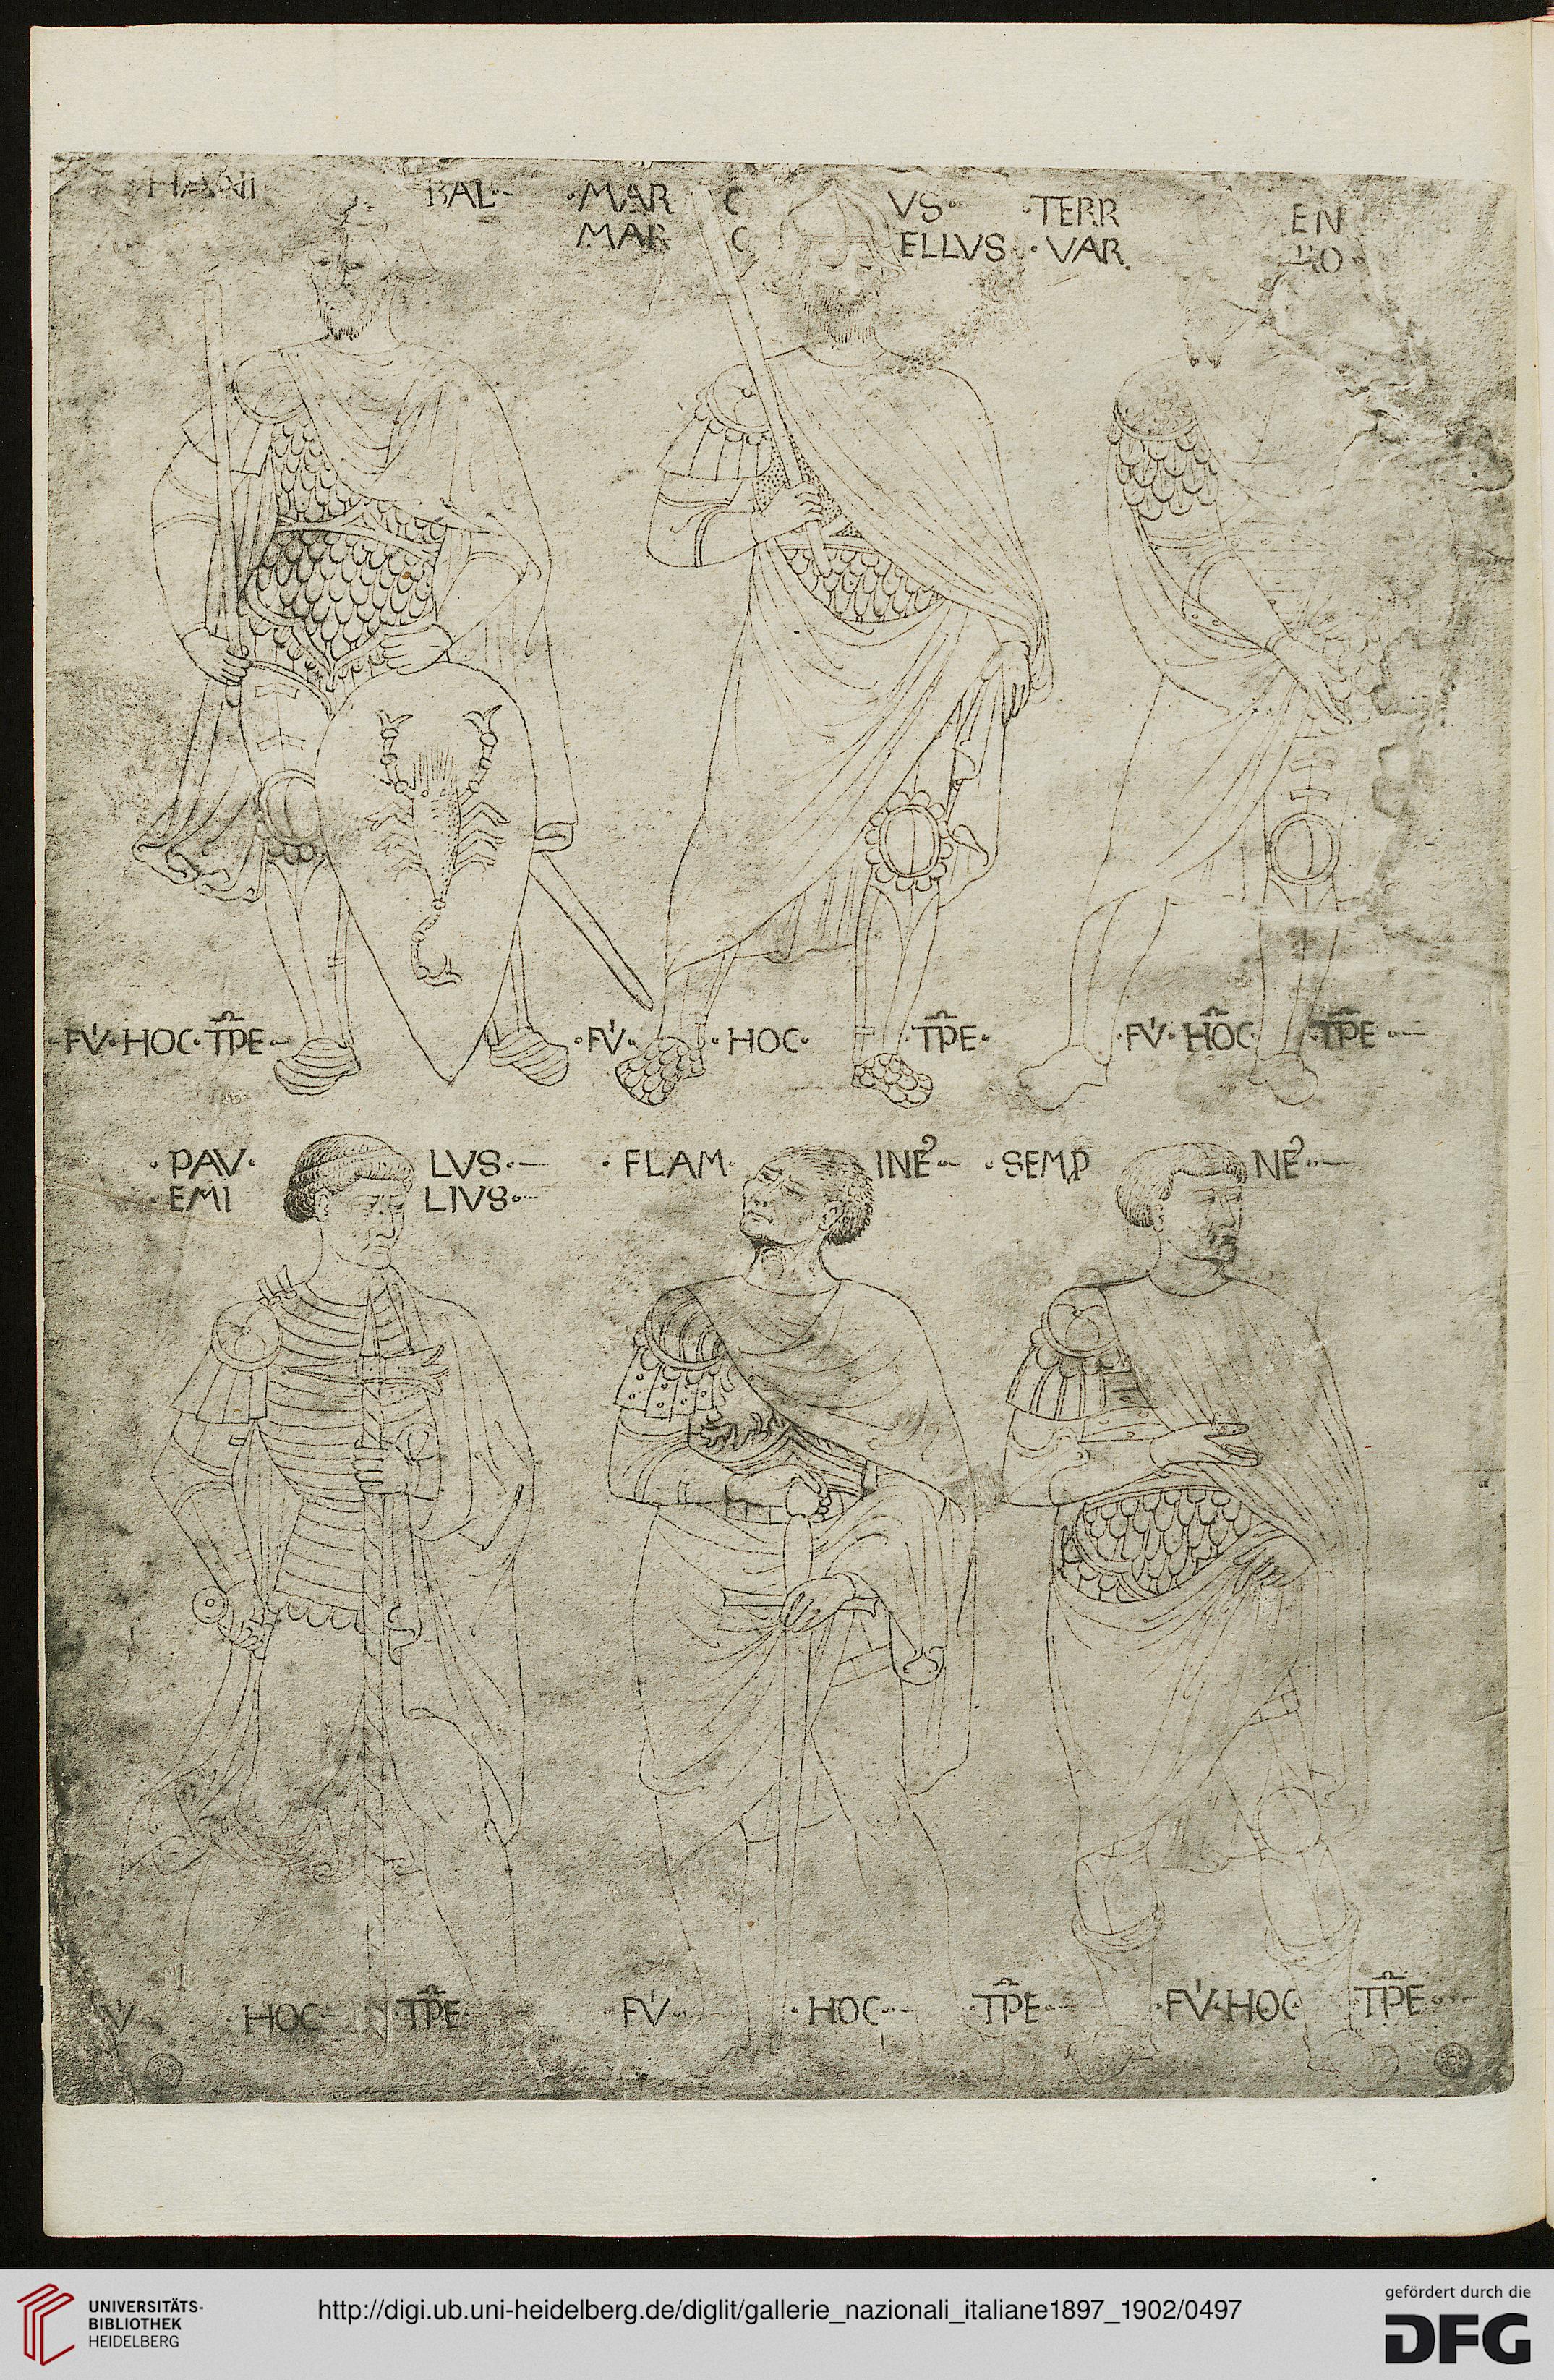 HANI BAL·- ·MAR C VS· ·TERR EN
MAR C ELLVS ·VAR. RO·
·FV'·HOC·TP̄E- ·FV'· ·HOC· ·TP̄E· ·FV'·HOC· ·TP̄E·-
·PAV· LVS·- ·FLAM· INE᾽·- ·SEMP NE᾽·-
·EMI LIVS·-
V'· ·HOC- ·TP̄E· FV'·- ·HOC·- ·TP̄E·- ·FV'·HOC· ·TP̄E·-
UNIVERSITÄTS-
BIBLIOTHEK
HEIDELBERG
http://digi.ub.uni-heidelberg.de/diglit/gallerie_nazionali_italiane1897_1902/0497
gefördert durch die
DFG